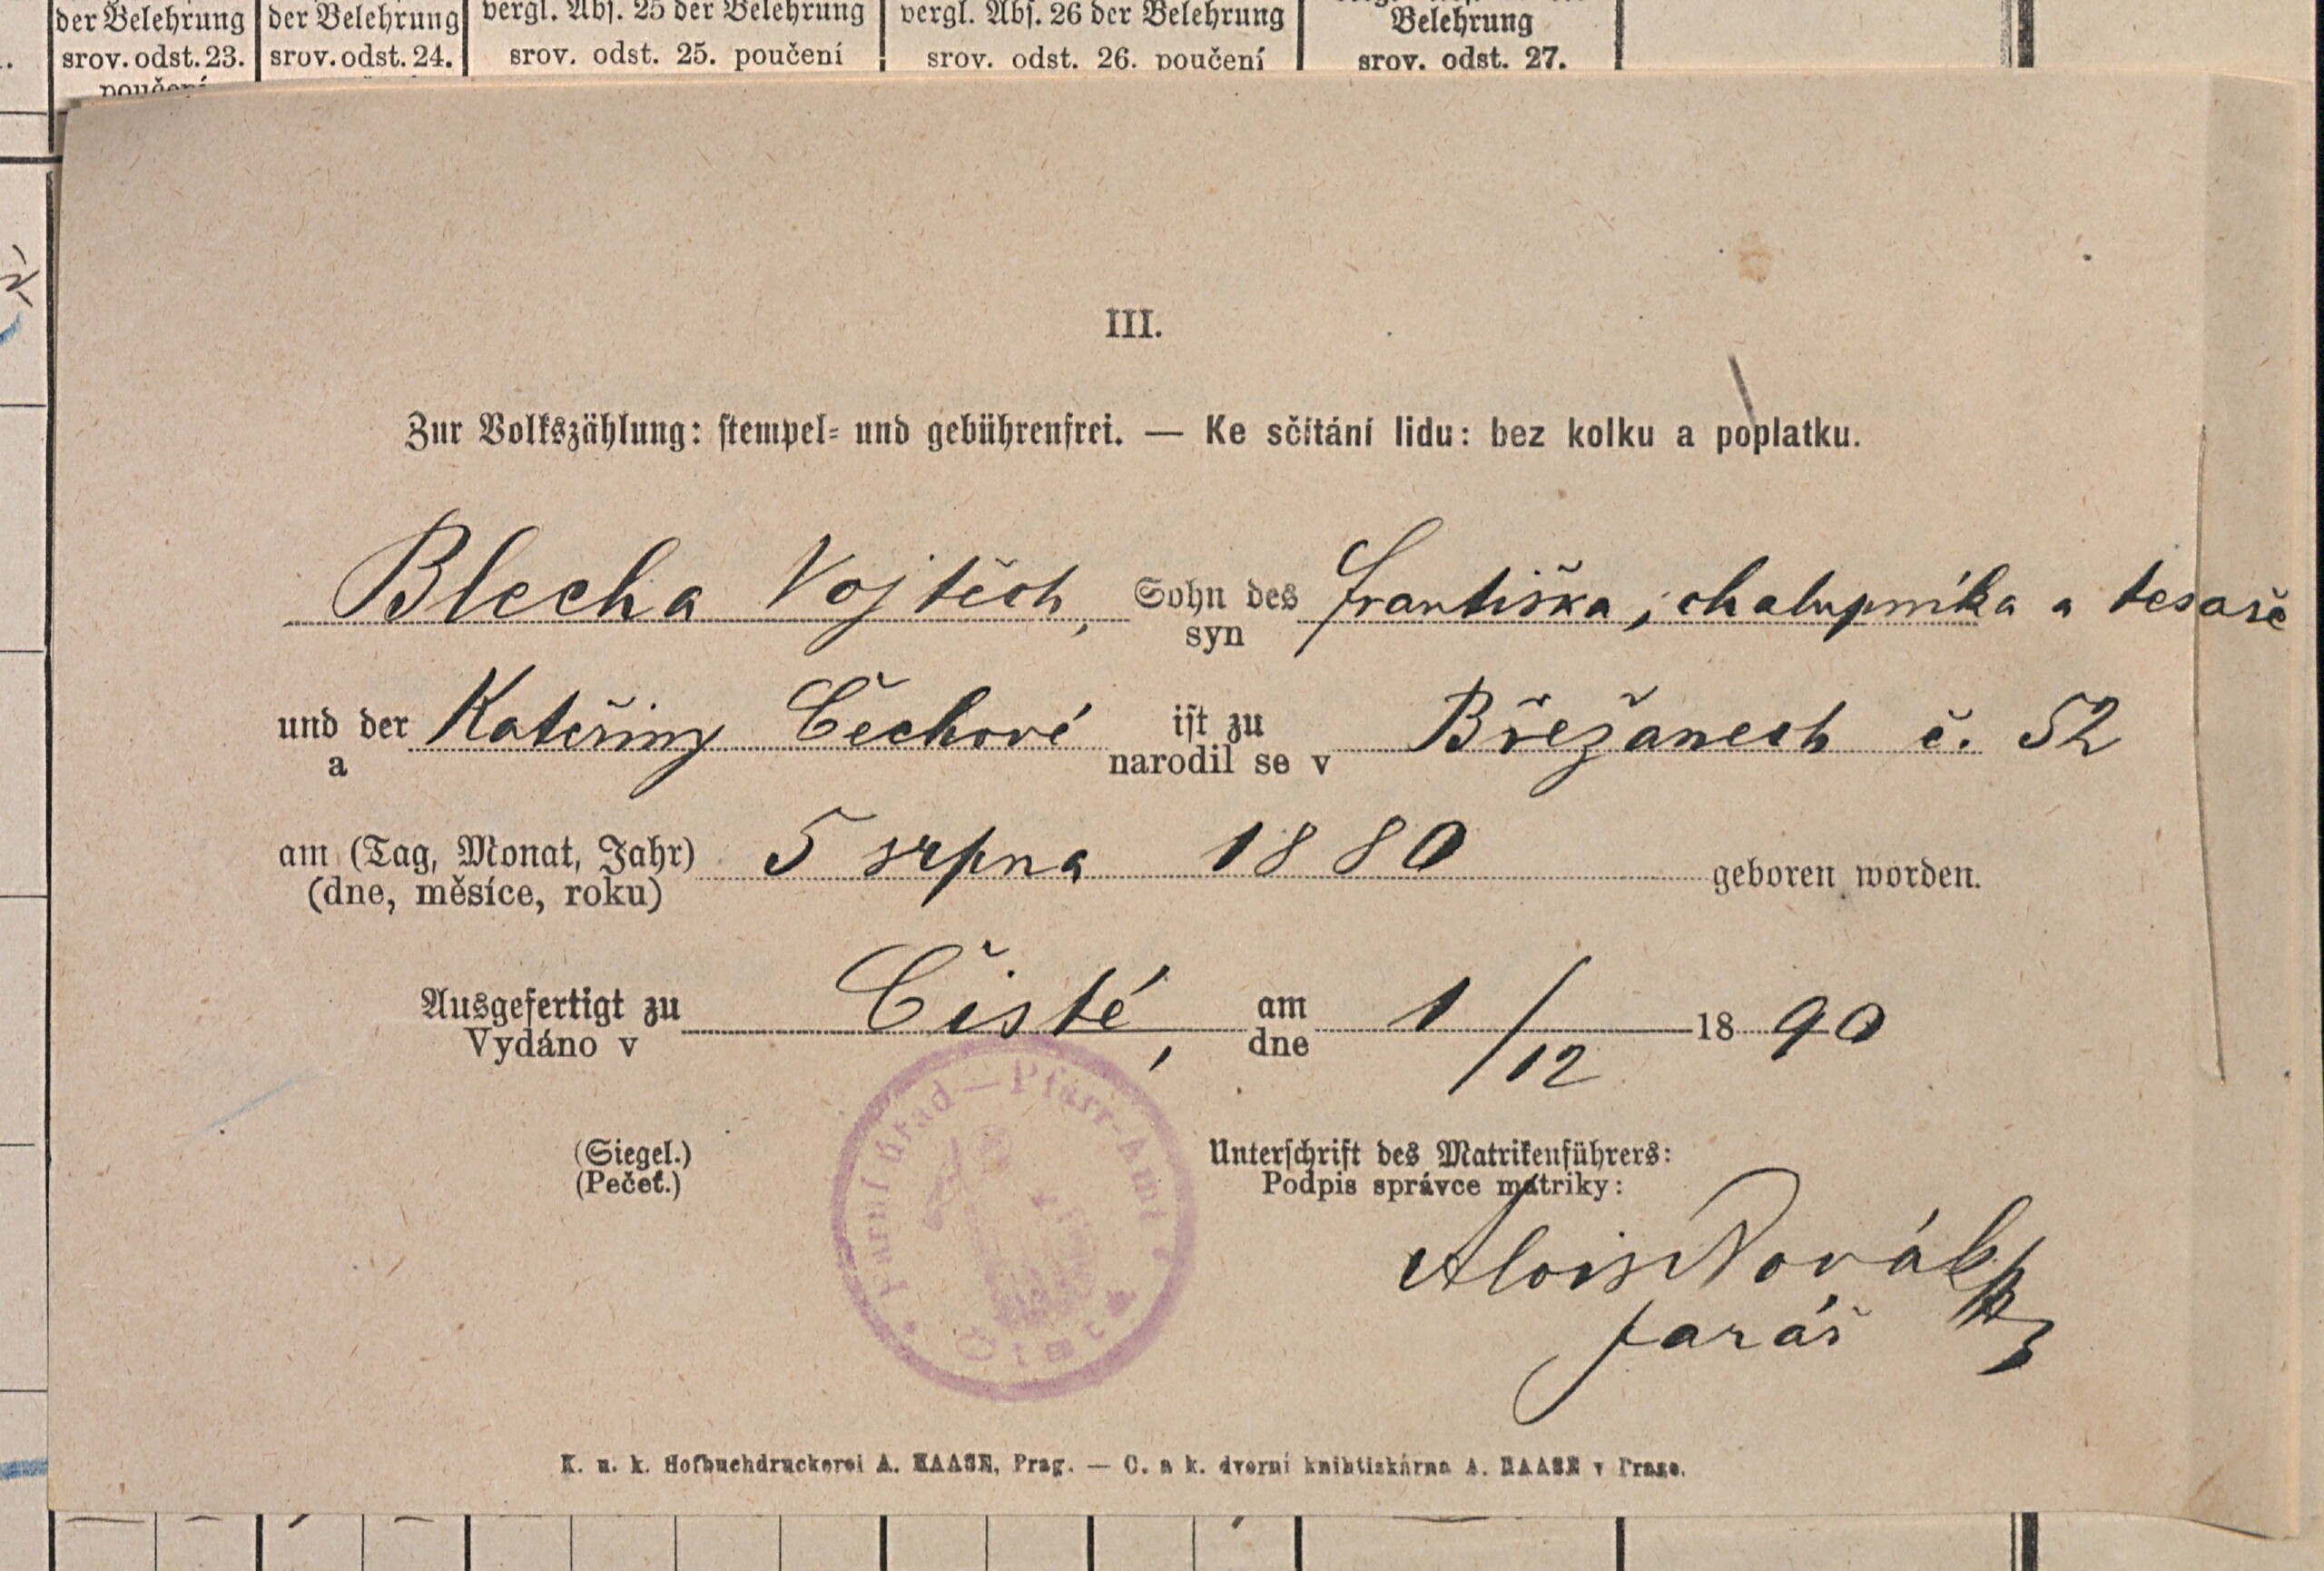 der Belehrung der Belehrung vergl. Abs. 25 der Belehrung vergl. Abs. 26 der Belehrung Belehrung
srov. odst. 23. srov. odst. 24. srov. odst. 25. poučení srov. odst. 26. poučení srov. odst. 27.
poučení
III.
Zur Volkszählung: stempel- und gebührenfrei. — Ke sčítání lidu: bez kolku a poplatku.
Blecha Vojtěch, Sohn des Františka, chalupníka a tesaře
syn
und der Kateřiny Čechové ist zu Břežanech č. 52
a narodil se v
am (Tag, Monat, Jahr) 5 srpna 1880 geboren worden.
(dne, měsíce, roku)
Ausgefertigt zu Čisté, am 1/12 1890
Vydáno v dne
Farní úřad — Pfarr-Amt
(Siegel.) Unterschrift des Matrikenführers:
(Pečeť.) Podpis správce matriky:
Alois Novák
farář
K. u. k. Hofbuchdruckerei A. HAASE, Prag. — C. a k. dvorní knihtiskárna A. HAASE v Praze.